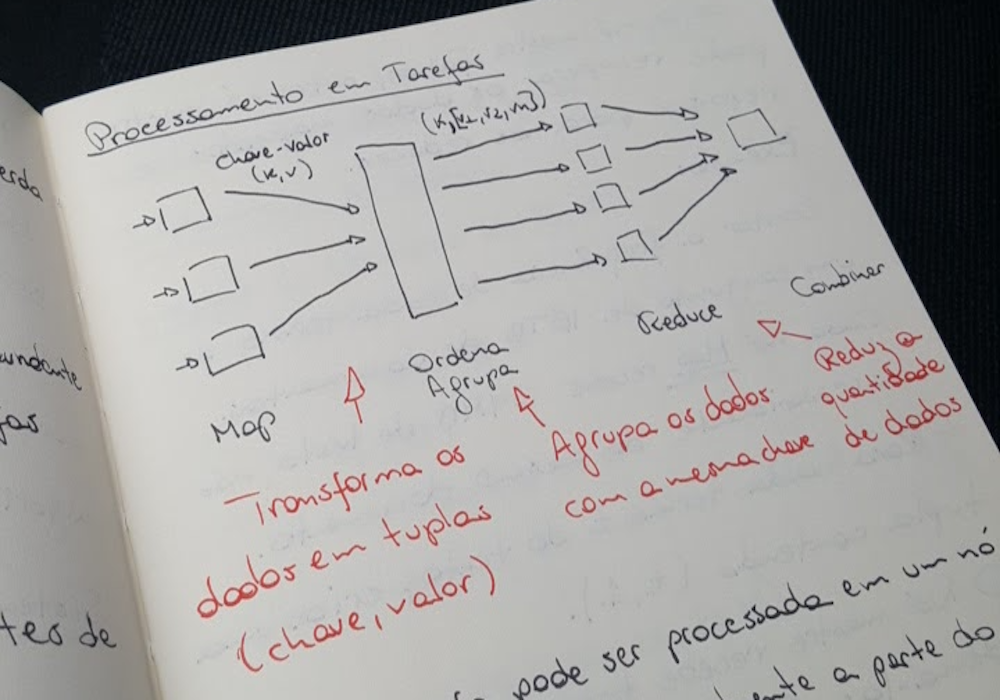 Processamento em Tarefas
chave-valor
(k,v)
(k,[v1,v2,vn])
Map
Ordena
Agrupa
Reduce
Combiner
Transforma os
dados em tuplas
(chave,valor)
Agrupa os dados
com a mesma chave
Reduz a
quantidade
de dados
pode ser processada em um nó
a parte do